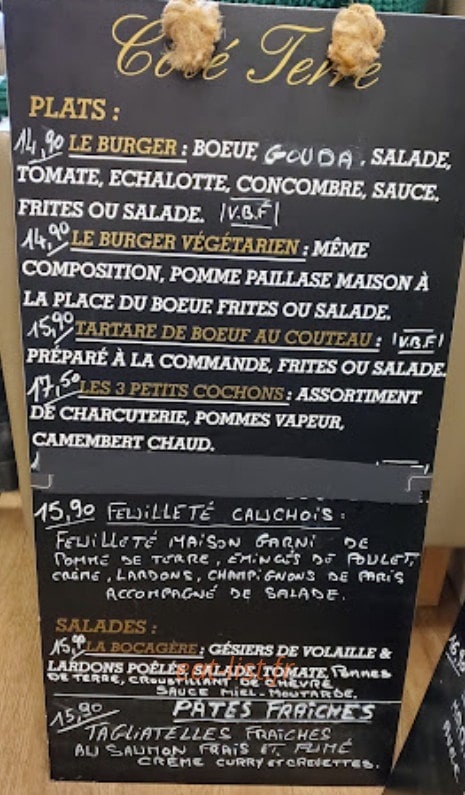 Coté Terre
PLATS :
14,90 LE BURGER : BOEUF, GOUDA, SALADE,
TOMATE, ECHALOTTE, CONCOMBRE, SAUCE.
FRITES OU SALADE. |V.B.F|
14,90 LE BURGER VÉGÉTARIEN : MÊME
COMPOSITION, POMME PAILLASE MAISON À
LA PLACE DU BOEUF. FRITES OU SALADE.
15,90 TARTARE DE BOEUF AU COUTEAU : |V.B.F|
PRÉPARÉ À LA COMMANDE, FRITES OU SALADE.
17,50 LES 3 PETITS COCHONS : ASSORTIMENT
DE CHARCUTERIE, POMMES VAPEUR,
CAMEMBERT CHAUD.
15,90 FEUILLETÉ CAUCHOIS :
FEUILLETÉ MAISON GARNI DE
POMME DE TERRE, ÉMINCÉS DE POULET,
CRÈME, LARDONS, CHAMPIGNONS DE PARIS
ACCOMPAGNÉ DE SALADE.
SALADES :
15,90 LA BOCAGÈRE : GÉSIERS DE VOLAILLE &
LARDONS POÊLÉS, SALADE, TOMATE, POMMES
DE TERRE, CROUSTILLANT DE CHÈVRE,
SAUCE MIEL-MOUTARDE.
eat-list.fr
PATES FRAÎCHES
15,90 TAGLIATELLES FRAÎCHES
AU SAUMON FRAIS ET FUMÉ
CRÈME CURRY ET CREVETTES.